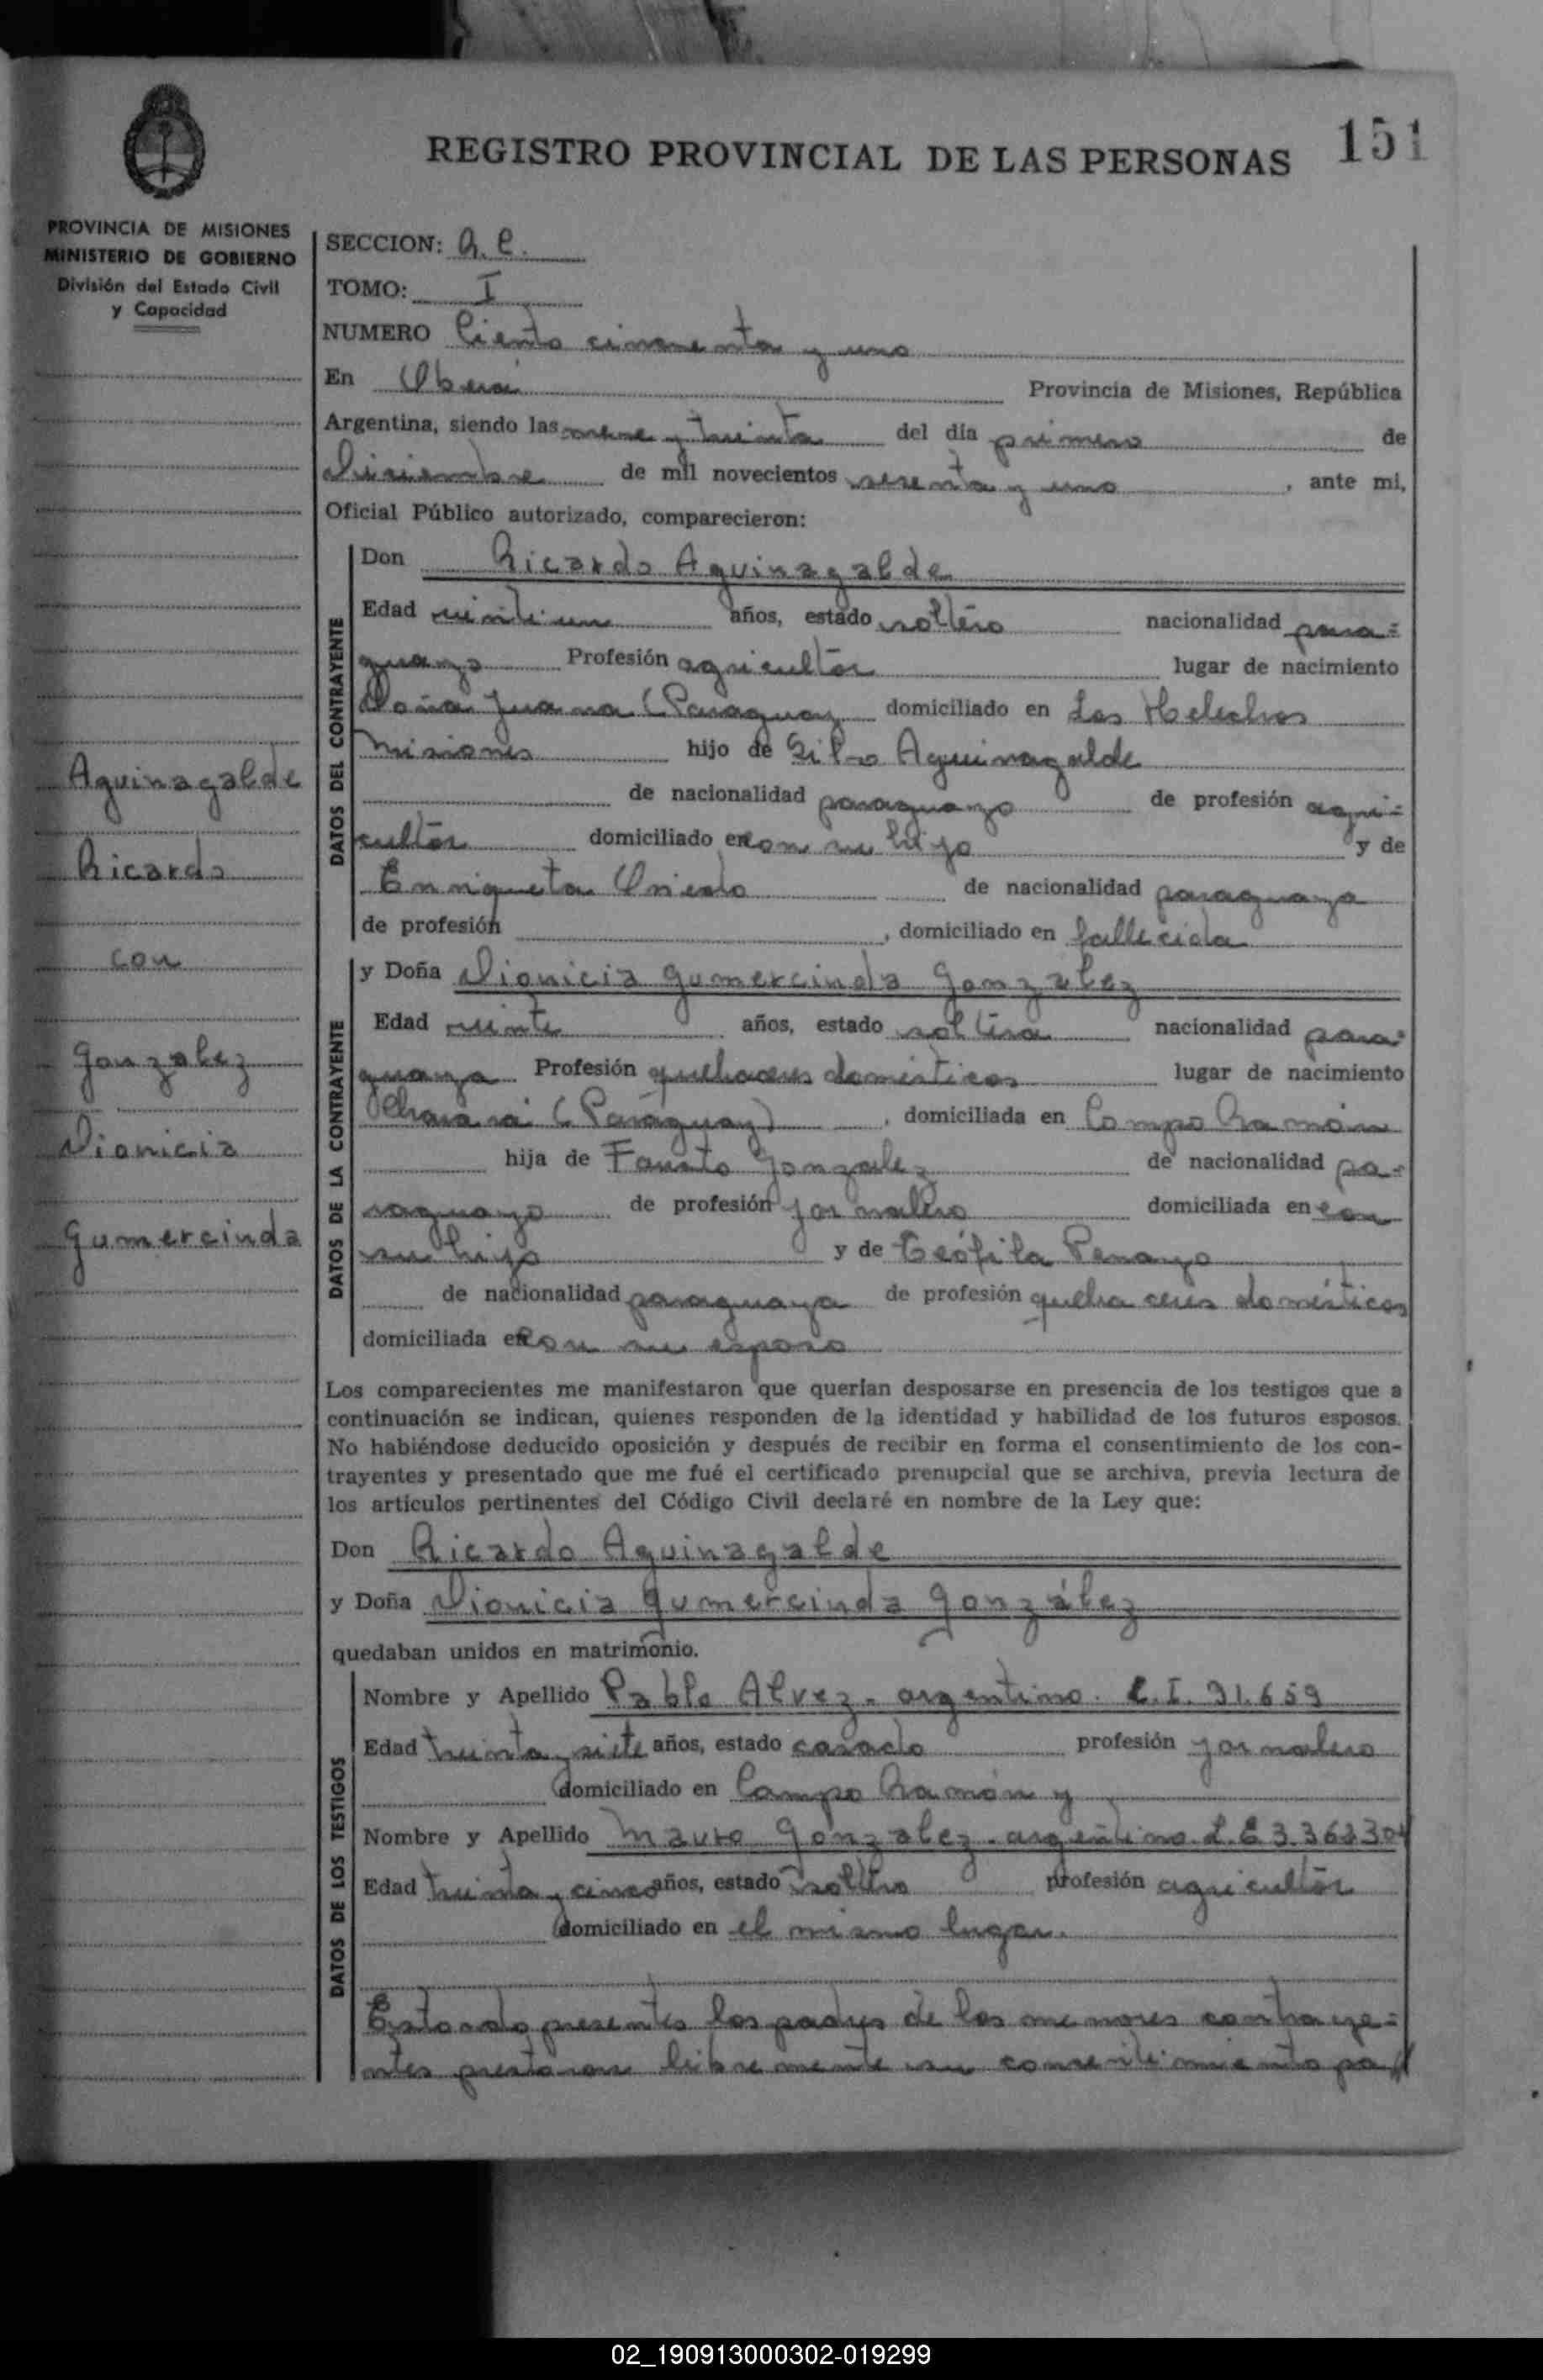 REGISTRO PROVINCIAL DE LAS PERSONAS
151
PROVINCIA DE MISIONES
MINISTERIO DE GOBIERNO
División del Estado Civil
y Capacidad
Aguinagalde
Ricardo
con
Gonzalez
Dionicia
Gumercinda
SECCION: R. C.
TOMO: I
NUMERO Ciento cincuenta y uno
En Oberá Provincia de Misiones, República
Argentina, siendo las nueve y treinta del día primero de
Diciembre de mil novecientos sesenta y uno, ante mi,
Oficial Público autorizado, comparecieron:
DATOS DEL CONTRAYENTE
Don Ricardo Aguinagalde
Edad veintiun años, estado soltero nacionalidad para=
guayo Profesión agricultor lugar de nacimiento
Doña Juana (Paraguay domiciliado en Los Helechos
Misiones hijo de Silvo Aguinagalde
de nacionalidad paraguayo de profesión agri=
cultor domiciliado en con su hijo y de
Enriqueta de nacionalidad paraguaya
de profesión , domiciliado en fallecida
DATOS DE LA CONTRAYENTE
y Doña Dionicia Gumercinda Gonzalez
Edad veinte años, estado soltera nacionalidad para=
guaya Profesión quehaceres domésticos lugar de nacimiento
(Paraguay) , domiciliada en Campo Ramón
hija de Fausto Gonzalez de nacionalidad pa=
raguayo de profesión jornalero domiciliada en con
su hija y de Teófila Penayo
de nacionalidad paraguaya de profesión quehaceres domésticos
domiciliada en con su esposo
Los comparecientes me manifestaron que querían desposarse en presencia de los testigos que a
continuación se indican, quienes responden de la identidad y habilidad de los futuros esposos.
No habiéndose deducido oposición y después de recibir en forma el consentimiento de los con-
trayentes y presentado que me fué el certificado prenupcial que se archiva, previa lectura de
los artículos pertinentes del Código Civil declaré en nombre de la Ley que:
Don Ricardo Aguinagalde
y Doña Dionicia Gumercinda González
quedaban unidos en matrimonio.
DATOS DE LOS TESTIGOS
Nombre y Apellido Pablo Alvez - argentino. C.I. 91.659
Edad treinta y siete años, estado casado profesión jornalero
domiciliado en Campo Ramón y
Nombre y Apellido Mauro Gonzalez - argentino. L.E 3.363.304
Edad treinta y cinco años, estado soltero profesión agricultor
domiciliado en el mismo lugar.
Estando presentes los padres de los menores contraye=
ntes prestaron libremente su consentimiento pa
02_190913000302-019299